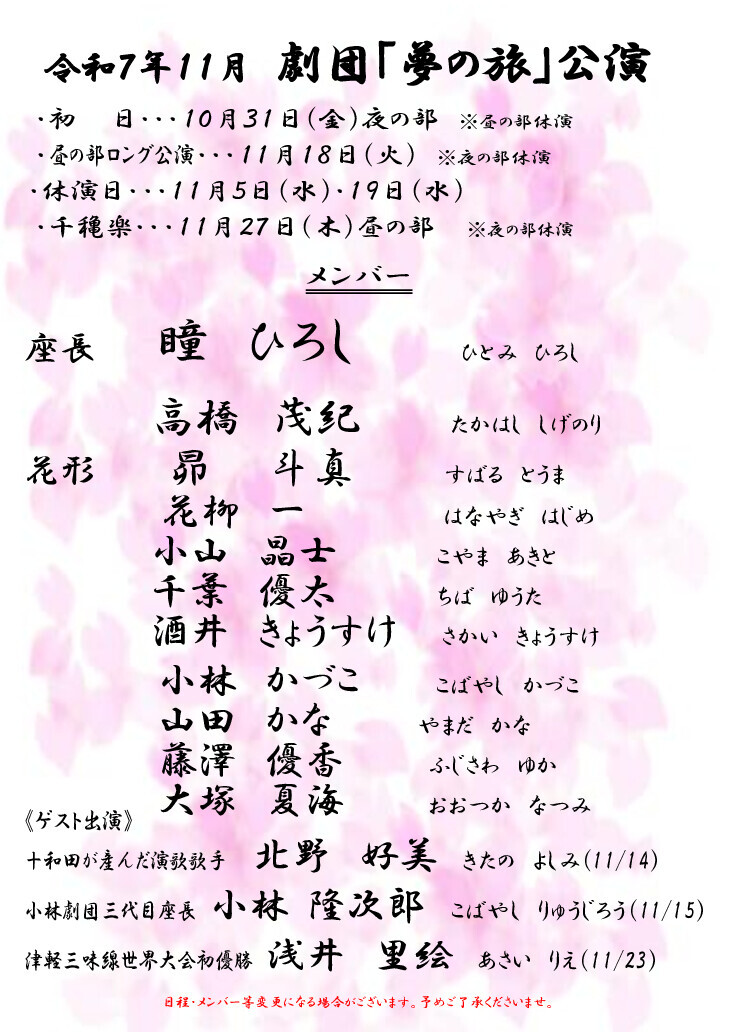 令和7年11月 劇団「夢の旅」公演
・初 日・・・10月31日(金)夜の部 ※昼の部休演
・昼の部ロング公演・・・11月18日(火) ※夜の部休演
・休演日・・・11月5日(水)・19日(水)
・千穐楽・・・11月27日(木)昼の部 ※夜の部休演
メンバー
座長 瞳 ひろし ひとみ ひろし
高橋 茂紀 たかはし しげのり
花形 昴 斗真 すばる とうま
花柳 一 はなやぎ はじめ
小山 晶士 こやま あきと
千葉 優太 ちば ゆうた
酒井 きょうすけ さかい きょうすけ
小林 かづこ こばやし かづこ
山田 かな やまだ かな
藤澤 優香 ふじさわ ゆか
大塚 夏海 おおつか なつみ
《ゲスト出演》
十和田が産んだ演歌歌手 北野 好美 きたの よしみ(11/14)
小林劇団三代目座長 小林 隆次郎 こばやし りゅうじろう(11/15)
津軽三味線世界大会初優勝 浅井 里絵 あさい りえ(11/23)
日程・メンバー等変更になる場合がございます。予めご了承くださいませ。